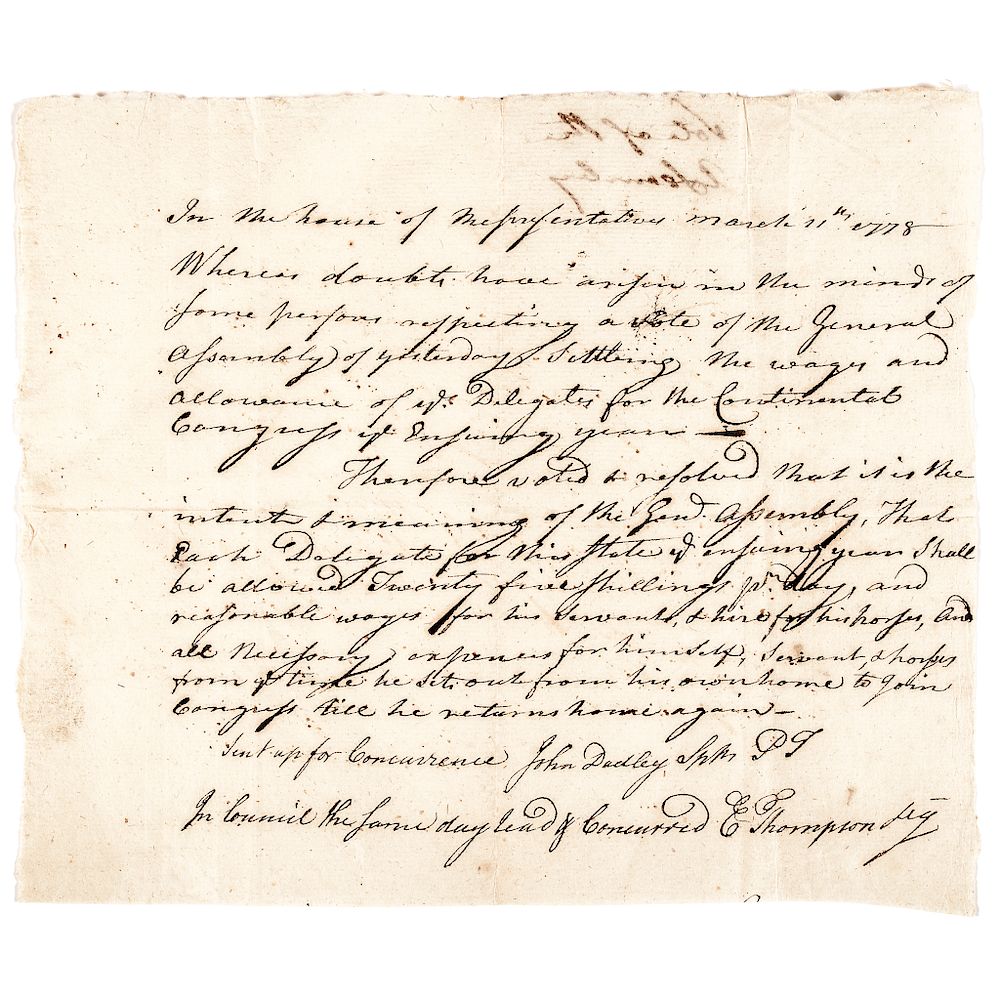 Vote of the
Assembly
In the house of Representatives march 11th 1778
Whereas doubts have arisen in the minds of
some persons respecting a Vote of the General
Assembly of yesterday Settling the wages and
allowance of ye Delegates for the Continental
Congress ye Ensuing year —
Therefore voted & resolved that it is the
intent & meaning of the Genl. Assembly, That
Each Delegate for this State ye ensuing year Shall
be allowed Twenty five shillings pr. day, and
reasonable wages for his Servant, & hire for his horses, And
all Necessary expences for himself, Servant, & horses
from ye time he sets out from his own home to Join
Congress till he returns home again —
Sent up for Concurrence John Dudley Spkr P T
In Council the same day read & Concurred E Thompson Secy